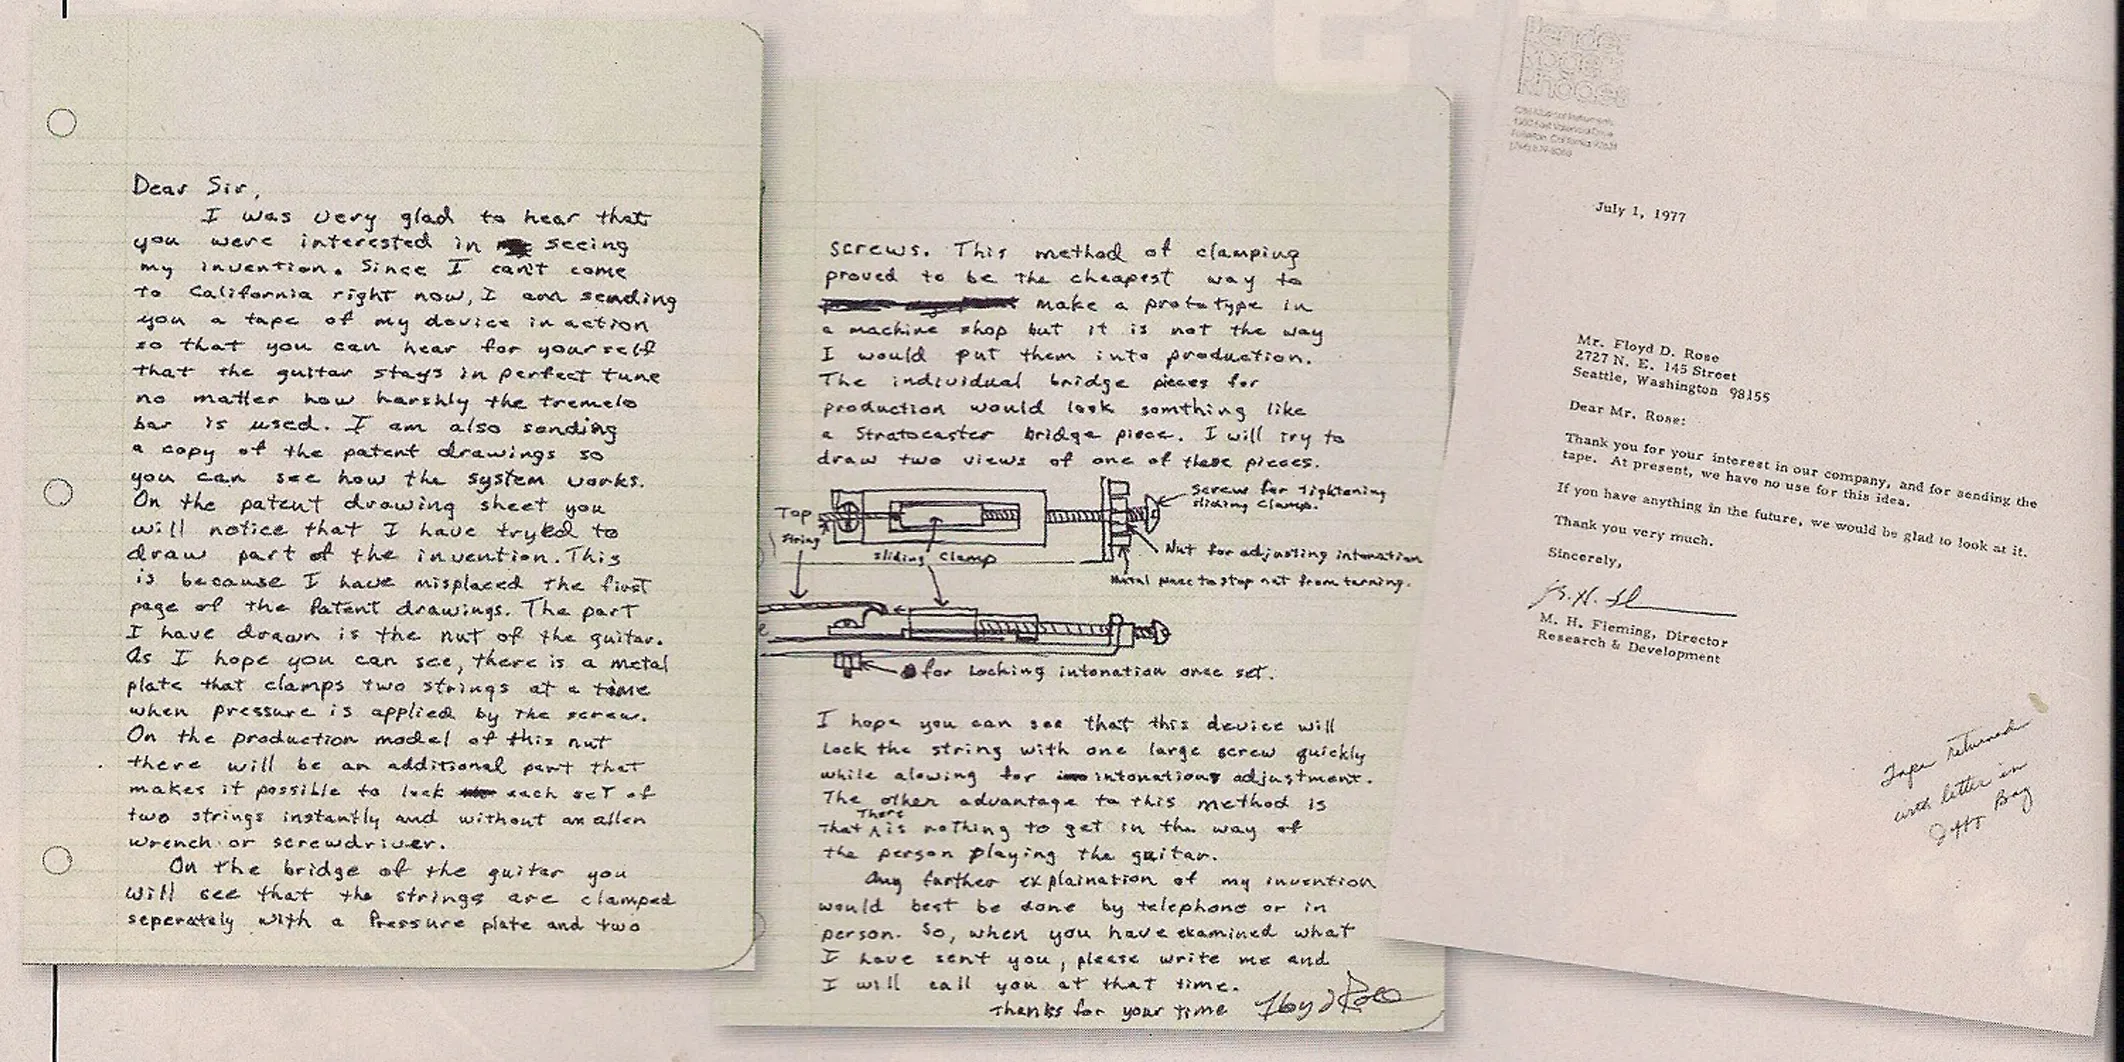 Dear Sir,
I was very glad to hear that
you were interested in seeing
my invention. Since I can't come
to California right now, I am sending
you a tape of my device in action
so that you can hear for yourself
that the guitar stays in perfect tune
no matter how harshly the tremelo
bar is used. I am also sending
a copy of the patent drawings so
you can see how the system works.
On the patent drawing sheet you
will notice that I have tryed to
draw part of the invention. This
is because I have misplaced the first
page of the Patent drawings. The part
I have drawn is the nut of the guitar.
As I hope you can see, there is a metal
plate that clamps two strings at a time
when pressure is applied by the screw.
On the production model of this nut
there will be an additional part that
makes it possible to lock each set of
two strings instantly and without an allen
wrench or screwdriver.
On the bridge of the guitar you
will see that the strings are clamped
seperately with a Pressure plate and two
screws. This method of clamping
proved to be the cheapest way to
make a prototype in
a machine shop but it is not the way
I would put them into production.
The individual bridge pieces for
production would look somthing like
a Stratocaster bridge piece. I will try to
draw two views of one of these pieces.
Screw for tightening
sliding clamp.
Top
String
sliding Clamp
Nut for adjusting intonation
Metal piece to stop nut from turning.
for Locking intonation once set.
I hope you can see that this device will
lock the string with one large screw quickly
while alowing for intonations adjustment.
The other advantage to this method is
that There is nothing to get in the way of
the person playing the guitar.
Any farther explaination of my invention
would best be done by telephone or in
person. So, when you have examined what
I have sent you, please write me and
I will call you at that time.
Thanks for your time Floyd Rose
Fender
Rogers
Rhodes
CBS Musical Instruments
1300 East Valencia Drive
Fullerton, California 92631
July 1, 1977
Mr. Floyd D. Rose
2727 N. E. 145 Street
Seattle, Washington 98155
Dear Mr. Rose:
Thank you for your interest in our company, and for sending the
tape. At present, we have no use for this idea.
If you have anything in the future, we would be glad to look at it.
Thank you very much.
Sincerely,
M. H. Fleming, Director
Research & Development
Tape returned
with letter in
Jiffy Bag